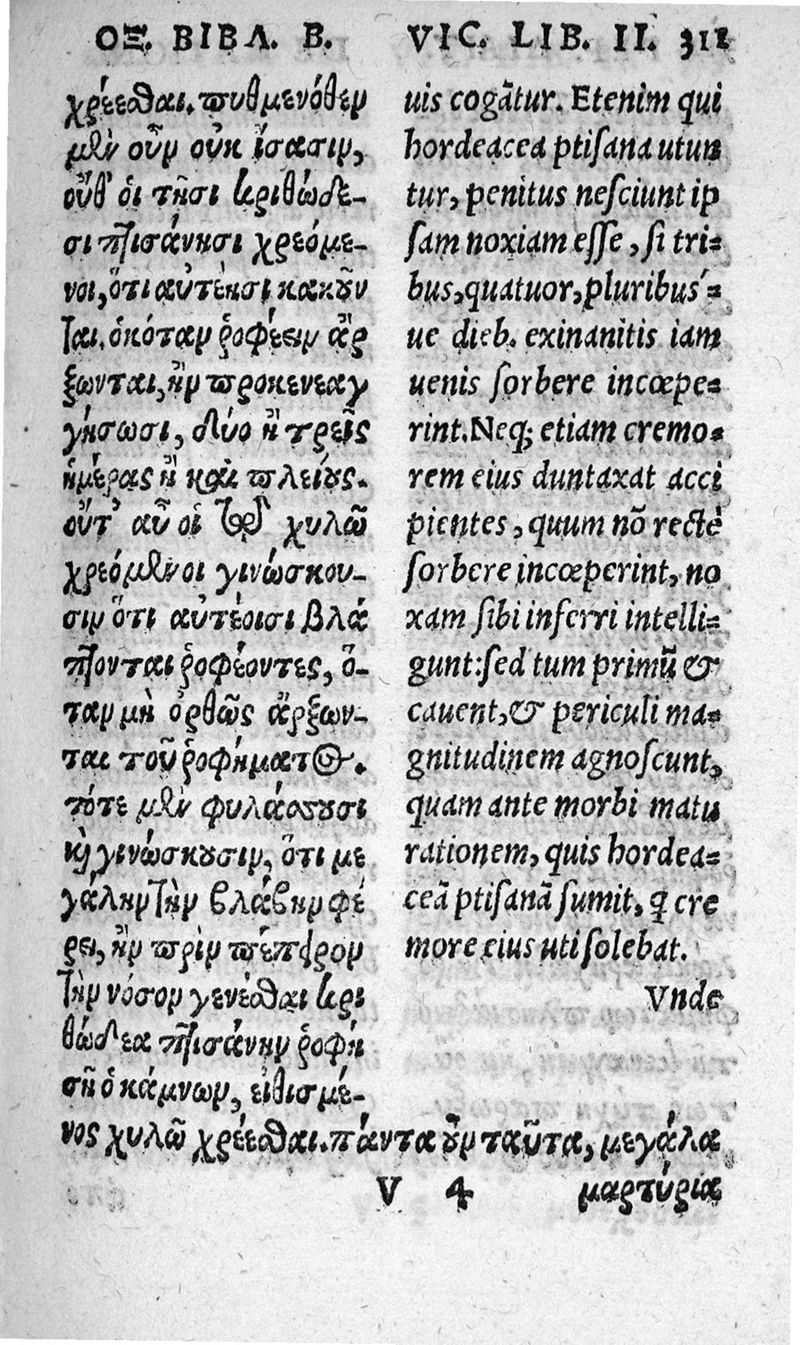 ΟΞ. ΒΙΒΛ. Β.
χρέεσθαι. πυθμενόθεν
μὲν οὖν οὐκ ἴσασιν,
οὔθ' οἱ τῇσι κριθώδε-
σι πτισάνῃσι χρεόμε-
νοι, ὅτι αὐτέῃσι κακοῦν
ται. ὁκόταν ῥοφέειν ἄρ
ξωνται, ἢν προκενεαγ
γήσωσι, δύο ἢ τρεῖς
ἡμέρας ἢ καὶ πλείους.
οὔτ' αὖ οἱ τῷ χυλῷ
χρεόμενοι γινώσκου-
σιν ὅτι αὐτέοισι βλά
πτονται ῥοφέοντες, ὅ-
ταν μὴ ὀρθῶς ἄρξων-
ται τοῦ ῥοφήματος.
τότε μὲν φυλάσσουσι
καὶ γινώσκουσιν, ὅτι με
γάλην τὴν βλάβην φέ
ρει, ἢν πρὶν πέπειρον
τὴν νόσον γενέσθαι κρι
θώδεα πτισάνην ῥοφή
σῃ ὁ κάμνων, εἰθισμέ-
νος χυλῷ χρέεσθαι. πάντα οὖν ταῦτα, μεγάλα
VIC. LIB. II. 311
uis cogãtur. Etenim qui
hordeacea ptiſana utun
tur, penitus neſciunt ip
ſam noxiam eſſe, ſi tri-
bus, quatuor, pluribus´-
ue dieb. exinanitis iam
uenis ſorbere incœpe-
rint. Neq; etiam cremo-
rem eius duntaxat acci
pientes, quum nõ rectè
ſorbere incœperint, no
xam ſibi inferri intelli-
gunt: ſed tum primũ &
cauent, & periculi ma-
gnitudinem agnoſcunt,
quam ante morbi matu
rationem, quis hordea-
ceã ptiſanã ſumit, q cre
more eius uti ſolebat.
Vnde
V 4 μαρτύρια